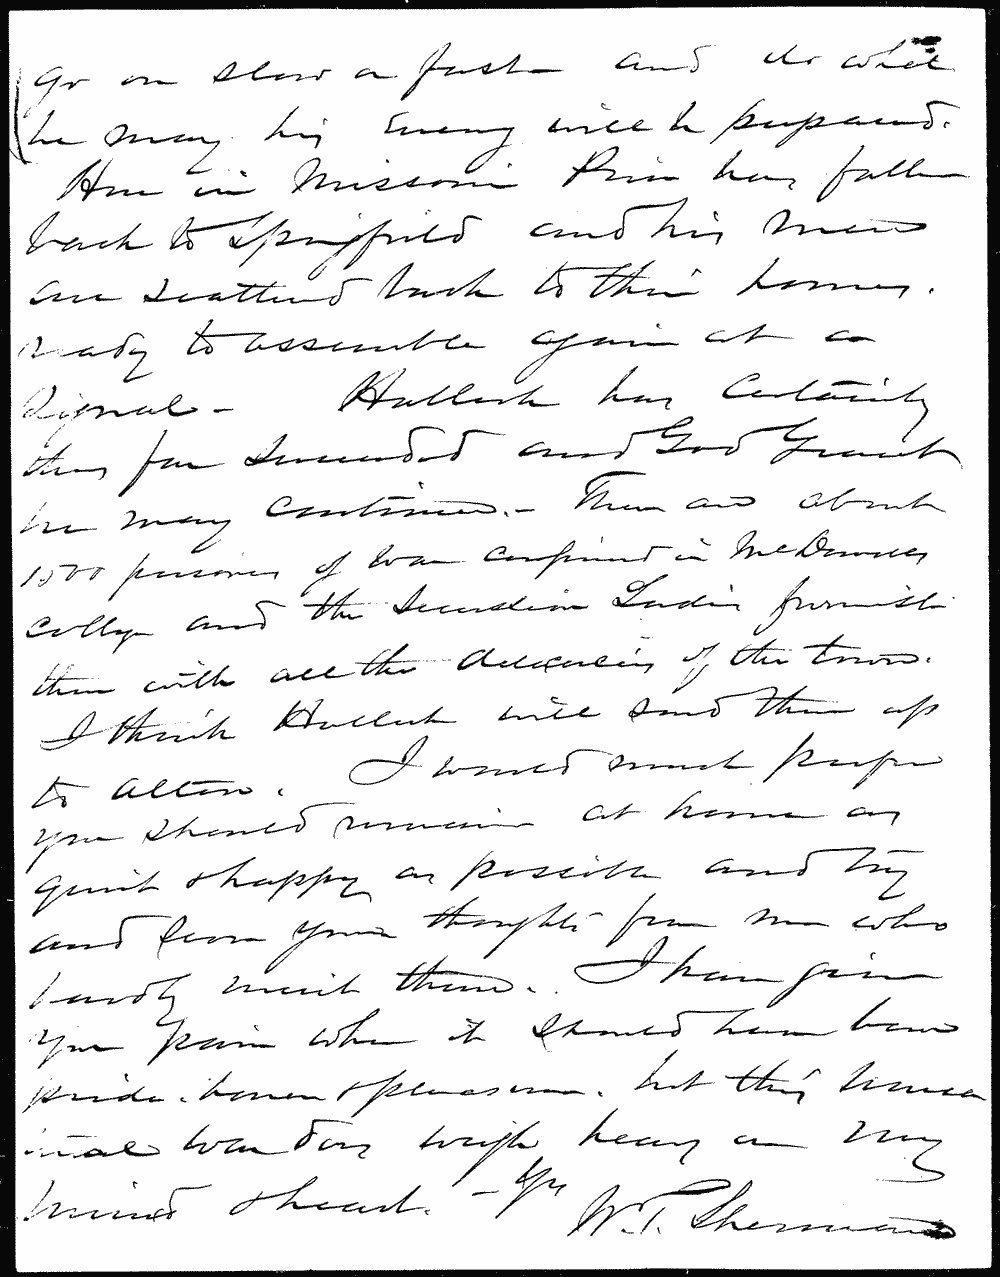 go on slow or faster and do what
he may his Enemy will be prepared.
Here in Missouri Price has fallen
back to Springfield and his men
are scattered back to their homes.
ready to assemble again at a
signal - Halleck has certainly
thus far succeeded and God Grant
he may continue. - There are about
1500 prisoners of war confined in McDowells
college and the Secession Ladies furnish
them with all the delicacies of the town.
I think Halleck will send them up
to Alton. I would much prefer
you should remain at home as
quiet & happy as possible and try
and wean your thoughts from me who
hardly merit them. I have given
you pain when it should have been
pride, honor & pleasure. but this
war does weigh heavy on my
mind & heart. - Yrs
W. T. Sherman